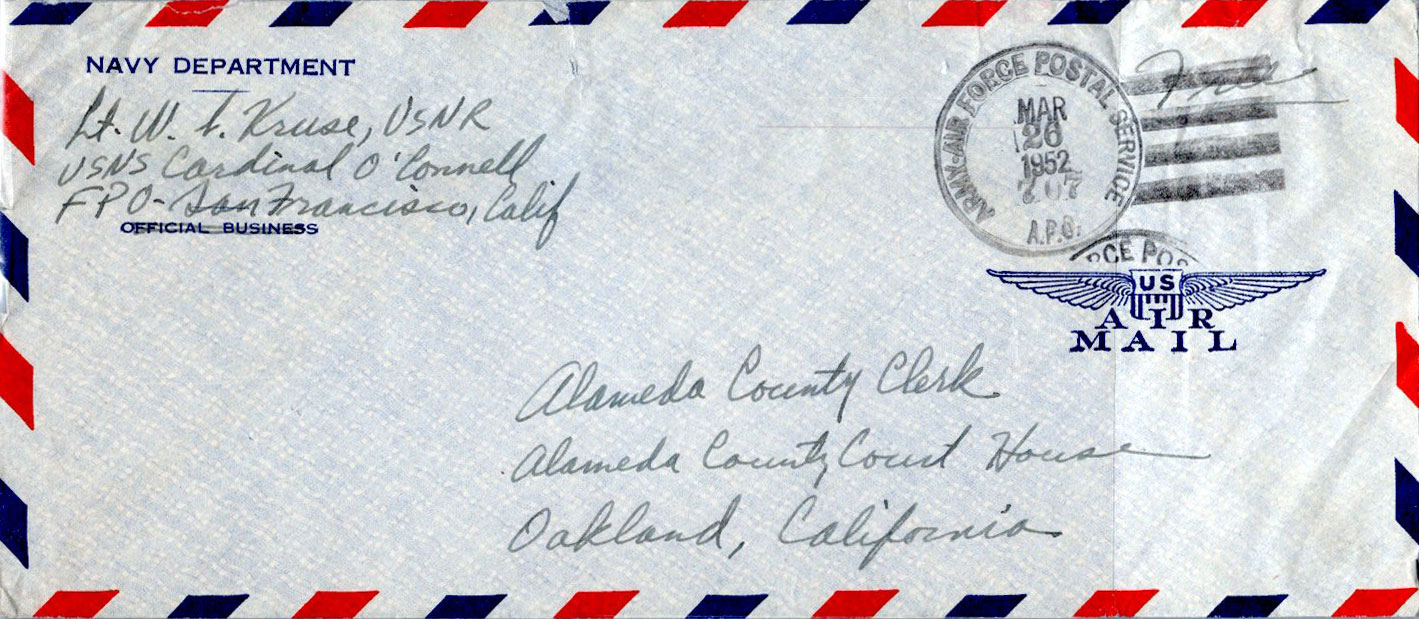 NAVY DEPARTMENT
Lt. W. L. Kruse, USNR
USNS Cardinal O'Connell
FPO - San Francisco, Calif
OFFICIAL BUSINESS
ARMY-AIR FORCE POSTAL SERVICE
MAR
26
1952
707
A.P.O.
Free
RCE POS
US
AIR
MAIL
Alameda County Clerk
Alameda County Court House
Oakland, California